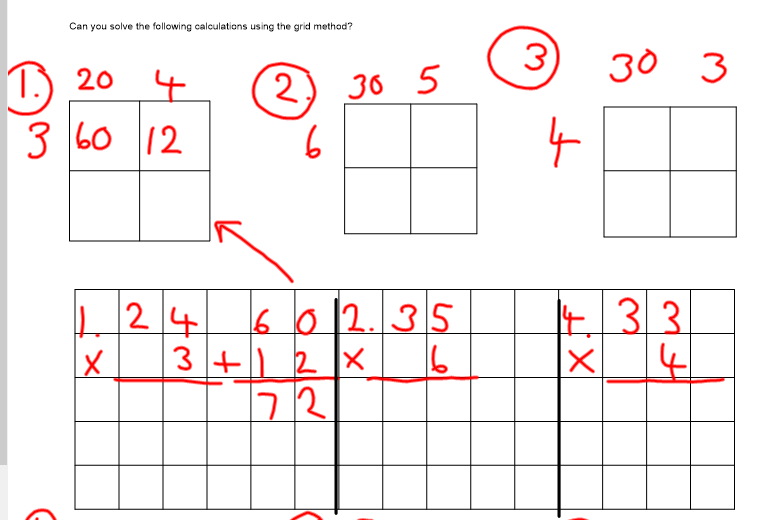 Can you solve the following calculations using the grid method?
1. 20 4
3 60 12
2. 30 5
6
3 30 3
4
1. 24 60 2. 35 4. 33
x 3 +12 x 6 x 4
72